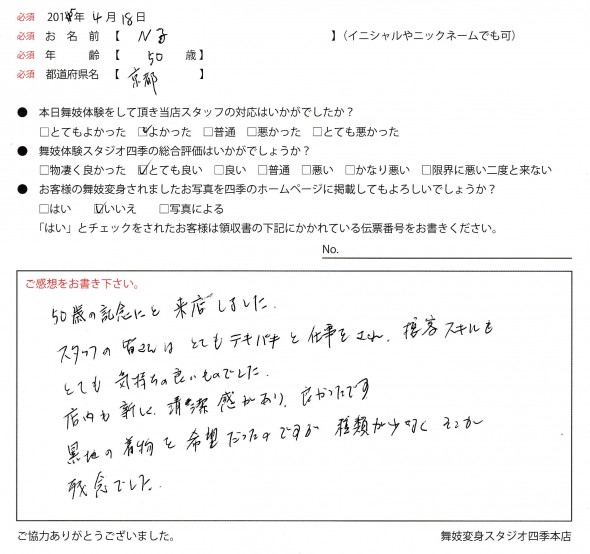 必須 2015年 4月 18日
必須 お 名 前 【 N子 】（イニシャルやニックネームでも可）
必須 年 齢 【 50 歳】
必須 都道府県名 【 京都 】
● 本日舞妓体験をして頂き当店スタッフの対応はいかがでしたか？
□とてもよかった ☑よかった □普通 □悪かった □とても悪かった
● 舞妓体験スタジオ四季の総合評価はいかがでしょうか？
□物凄く良かった ☑とても良い □良い □普通 □悪い □かなり悪い □限界に悪い二度と来ない
● お客様の舞妓変身されましたお写真を四季のホームページに掲載してもよろしいでしょうか？
□はい ☑いいえ □写真による
「はい」とチェックをされたお客様は領収書の下記にかかれている伝票番号をお書きください。
No.
ご感想をお書き下さい。
50歳の記念にと 来店しました。
スタッフの皆さんは とてもテキパキと仕事をされ、接客スキルも
とても 気持ちの良いものでした。
店内も新しく、清潔感があり、良かったです
黒地の着物を希望だったのですが 種類が少なく そこが
残念でした。
ご協力ありがとうございました。
舞妓変身スタジオ四季本店